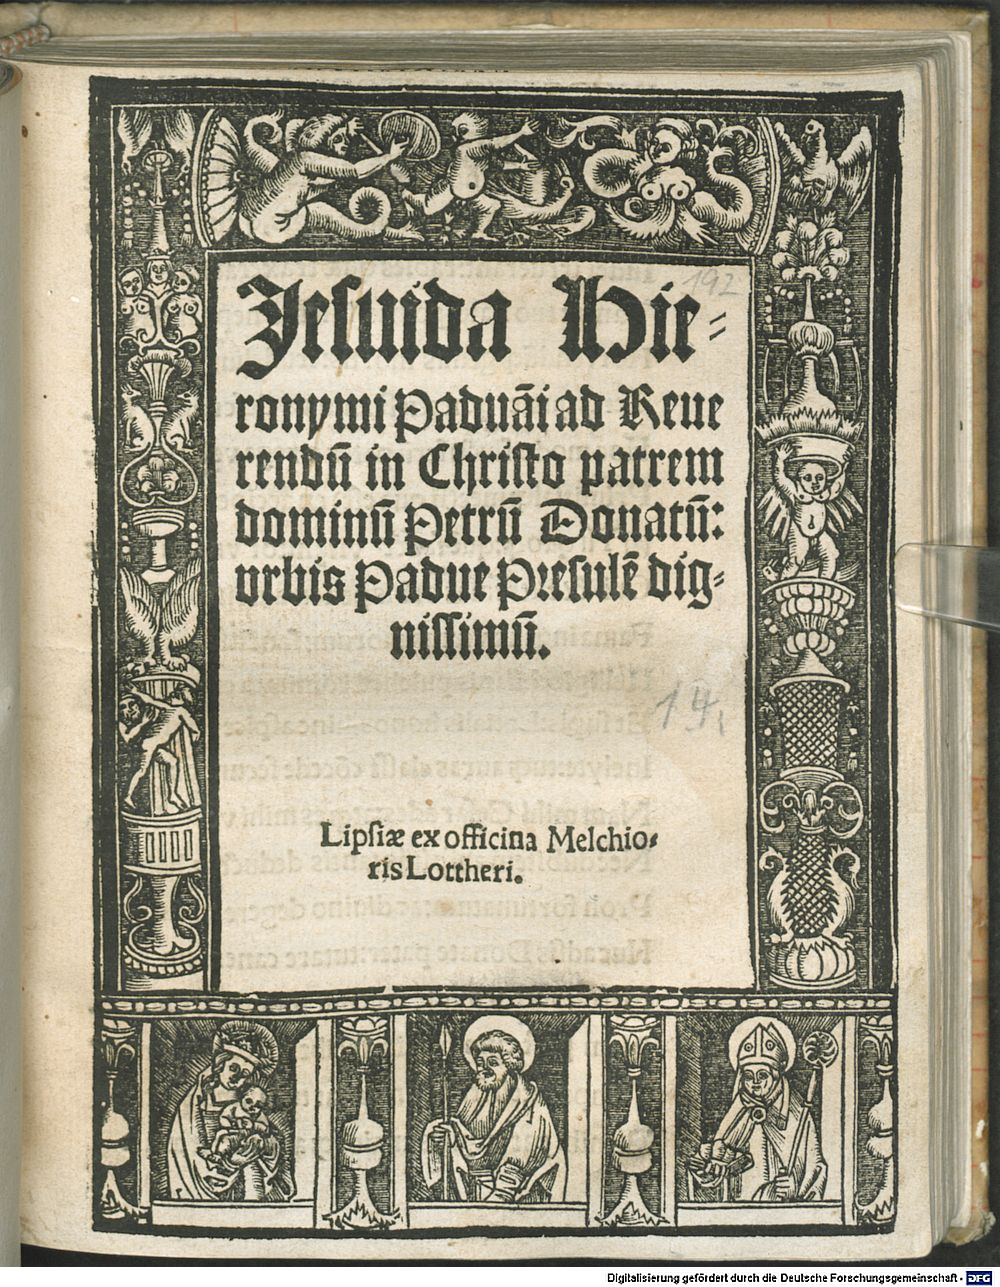 Jesuida Hie⸗
ronymi Paduãi ad Reue
rendū in Christo patrem
dominū Petrū Donatū:
vrbis Padue Presulē dig⸗
nissimū.
192
14.
Lipsiæ ex officina Melchio⸗
ris Lottheri.
Digitalisierung gefördert durch die Deutsche Forschungsgemeinschaft - DFG